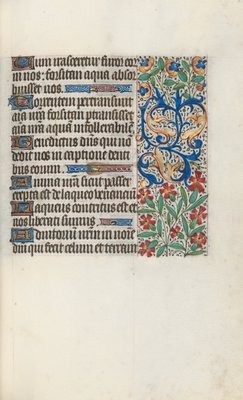 Cum irasceretur furor eor
in nos: forsitan aqua absor
buisset nos.
Torrentem pertransiuit
aīa nr̄a forsitan pertransisset
aīa nr̄a aquā intollerabilē.
Benedictus dn̄s qui nō
dedit nos in captione denti
bus eorum.
Anima nr̄a sicut passer
erepta est de laqueo venanciū
Laqueus contritus est et
nos liberati sumus.
Adiutoriū nr̄m in noīe
dn̄i qui fecit celum et terram